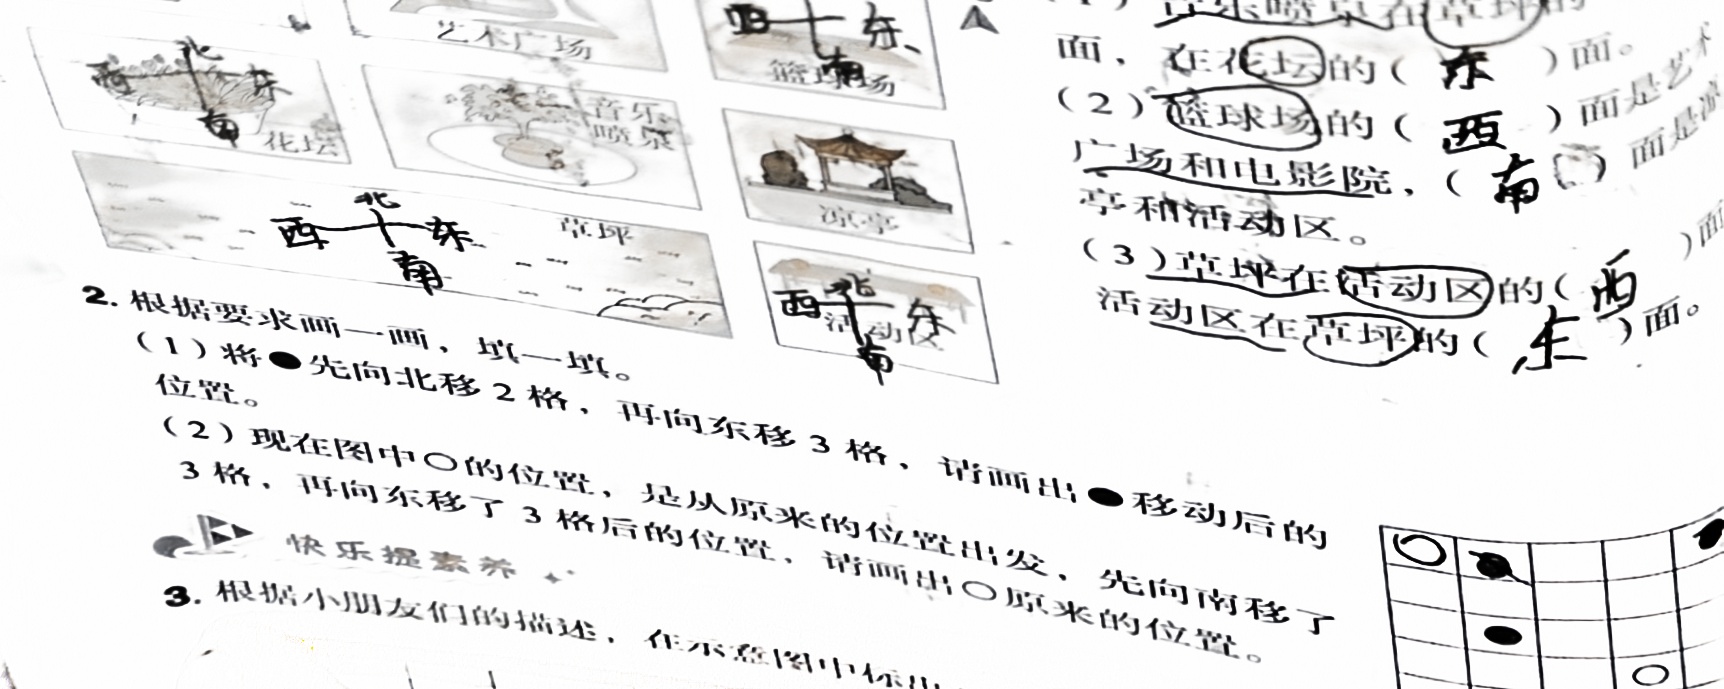 艺术广场
西 东
南
篮球场
北
西 东
南
花坛
音乐
喷泉
凉亭
北
西 东
南
草坪
北
西 东
活动区
南
音乐喷泉在草坪的
面，在花坛的（ 东 ）面。
（2）篮球场的（ 西 ）面是艺术
广场和电影院，（ 南 ）面是凉
亭和活动区。
（3）草坪在活动区的（ 西 ）面
活动区在草坪的（ 东 ）面。
2. 根据要求画一画，填一填。
（1）将●先向北移 2 格，再向东移 3 格，请画出●移动后的
位置。
（2）现在图中○的位置，是从原来的位置出发，先向南移了
3 格，再向东移了 3 格后的位置，请画出○原来的位置。
快乐提素养
3. 根据小朋友们的描述，在示意图中标出